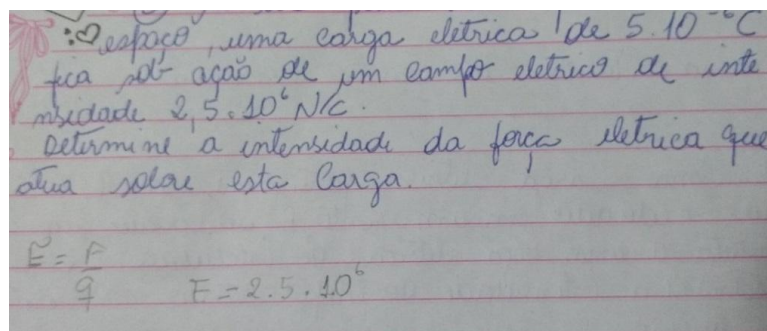 espaço, uma carga eletrica de 5.10⁻⁶C
fica sob ação de um campo eletrico de inte
nsidade 2,5.10⁶ N/C.
Determine a intensidade da força eletrica que
atua sobre esta Carga.
E = F/q
E = 2.5.10⁶